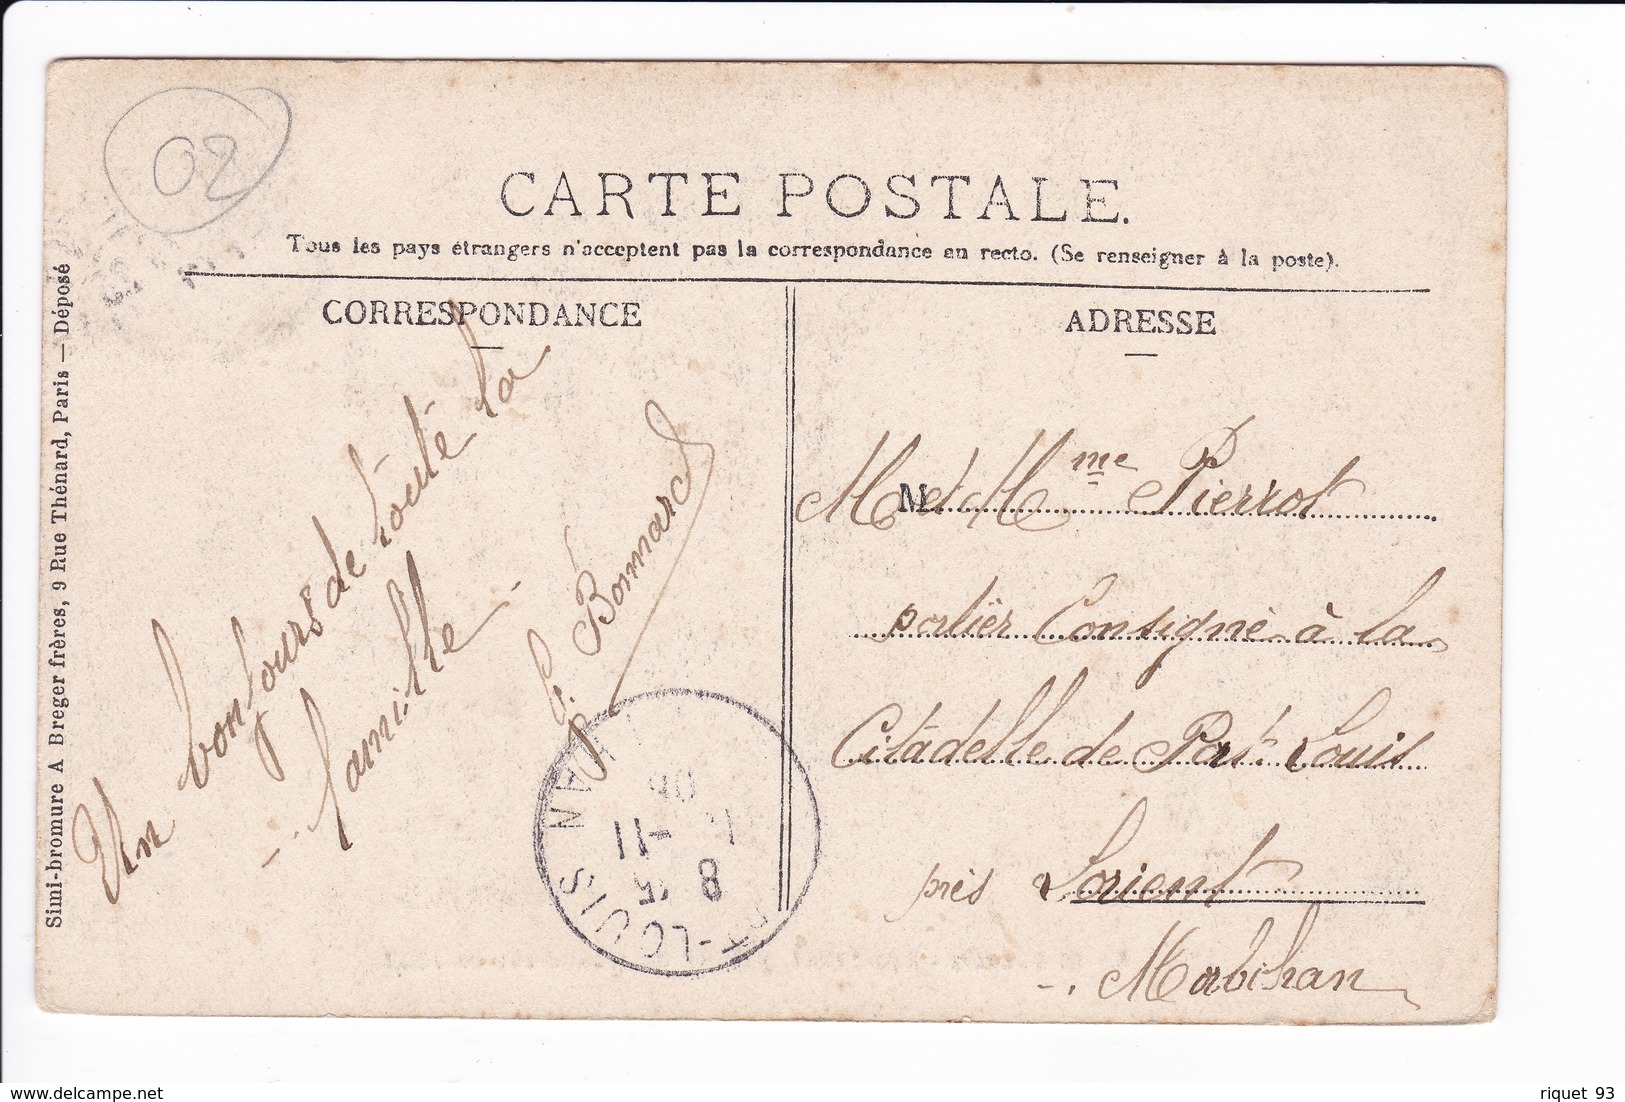 02
CARTE POSTALE.
Tous les pays étrangers n'acceptent pas la correspondance au recto. (Se renseigner à la poste).
CORRESPONDANCE
Un bonjours de toute la
famille
Bonnard
Simi-bromure A Breger frères, 9 Rue Thénard, Paris — Déposé
ADRESSE
M et Mme Pierrot
M
portier Consigne à la
Citadelle de Port Louis
près Lorient
Morbihan
PT-LOUIS
8 15
11
06
riquet 93